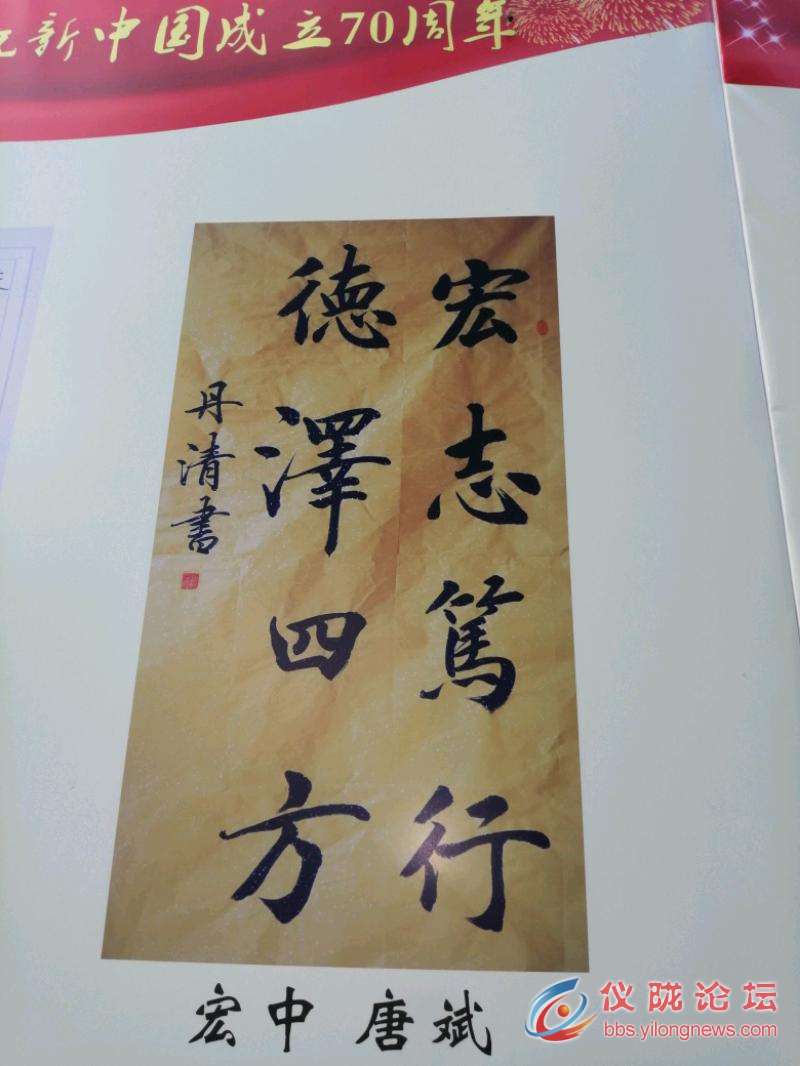 新中国成立70周年
宏志篤行
德澤四方
丹清書
宏中 唐斌
仪陇论坛
bbs.yilongnews.com